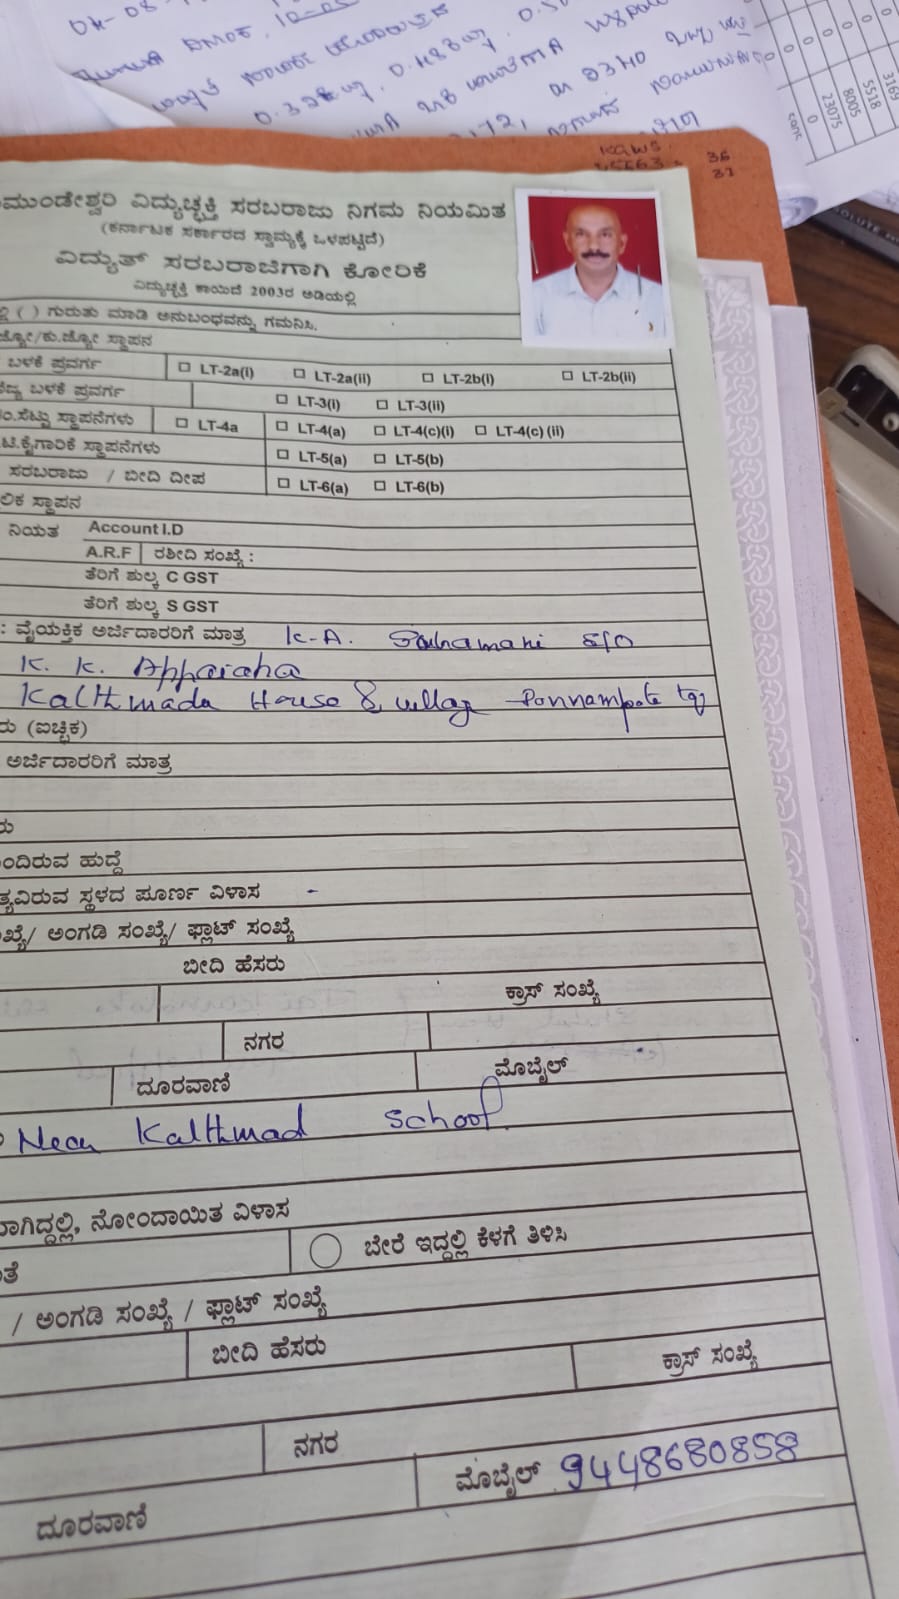 ಮುಂಡೇಶ್ವರಿ ವಿದ್ಯುಚ್ಛಕ್ತಿ ಸರಬರಾಜು ನಿಗಮ ನಿಯಮಿತ
(ಕರ್ನಾಟಕ ಸರ್ಕಾರದ ಸ್ವಾಮ್ಯಕ್ಕೆ ಒಳಪಟ್ಟಿದೆ)
ವಿದ್ಯುತ್ ಸರಬರಾಜಿಗಾಗಿ ಕೋರಿಕೆ
ವಿದ್ಯುಚ್ಛಕ್ತಿ ಕಾಯಿದೆ 2003ರ ಅಡಿಯಲ್ಲಿ
( ) ಗುರುತು ಮಾಡಿ ಅನುಬಂಧವನ್ನು ಗಮನಿಸಿ.
ಸ್ಥಾಪನ
ಬಳಕೆ ಪ್ರವರ್ಗ ☐ LT-2a(i) ☐ LT-2a(ii) ☐ LT-2b(i) ☐ LT-2b(ii)
ಬಳಕೆ ಪ್ರವರ್ಗ ☐ LT-3(i) ☐ LT-3(ii)
ಸ್ಥಾಪನೆಗಳು ☐ LT-4a ☐ LT-4(a) ☐ LT-4(c)(i) ☐ LT-4(c) (ii)
ಟಿ.ಕೈಗಾರಿಕೆ ಸ್ಥಾಪನೆಗಳು ☐ LT-5(a) ☐ LT-5(b)
ಸರಬರಾಜು / ಬೀದಿ ದೀಪ ☐ LT-6(a) ☐ LT-6(b)
ಲಿಕ ಸ್ಥಾಪನ
ನಿಯತ Account I.D
A.R.F ರಶೀದಿ ಸಂಖ್ಯೆ :
ತೆರಿಗೆ ಶುಲ್ಕ C GST
ತೆರಿಗೆ ಶುಲ್ಕ S GST
: ವೈಯಕ್ತಿಕ ಅರ್ಜಿದಾರರಿಗೆ ಮಾತ್ರ K.A. S/O
K. K. Appaiaha
Kalthmada House & village Ponnampete tq
ರು (ಐಚ್ಛಿಕ)
ಅರ್ಜಿದಾರರಿಗೆ ಮಾತ್ರ
ರು
ಂದಿರುವ ಹುದ್ದೆ
ತ್ಯವಿರುವ ಸ್ಥಳದ ಪೂರ್ಣ ವಿಳಾಸ -
ಖ್ಯೆ/ ಅಂಗಡಿ ಸಂಖ್ಯೆ/ ಫ್ಲಾಟ್ ಸಂಖ್ಯೆ
ಬೀದಿ ಹೆಸರು
ಕ್ರಾಸ್ ಸಂಖ್ಯೆ
ನಗರ
ದೂರವಾಣಿ ಮೊಬೈಲ್
Near Kalthmad School
ವಾಗಿದ್ದಲ್ಲಿ, ನೋಂದಾಯಿತ ವಿಳಾಸ
ತೆ ಬೇರೆ ಇದ್ದಲ್ಲಿ ಕೆಳಗೆ ತಿಳಿಸಿ
/ ಅಂಗಡಿ ಸಂಖ್ಯೆ / ಫ್ಲಾಟ್ ಸಂಖ್ಯೆ
ಬೀದಿ ಹೆಸರು
ಕ್ರಾಸ್ ಸಂಖ್ಯೆ
ನಗರ
ದೂರವಾಣಿ ಮೊಬೈಲ್ 9448680858